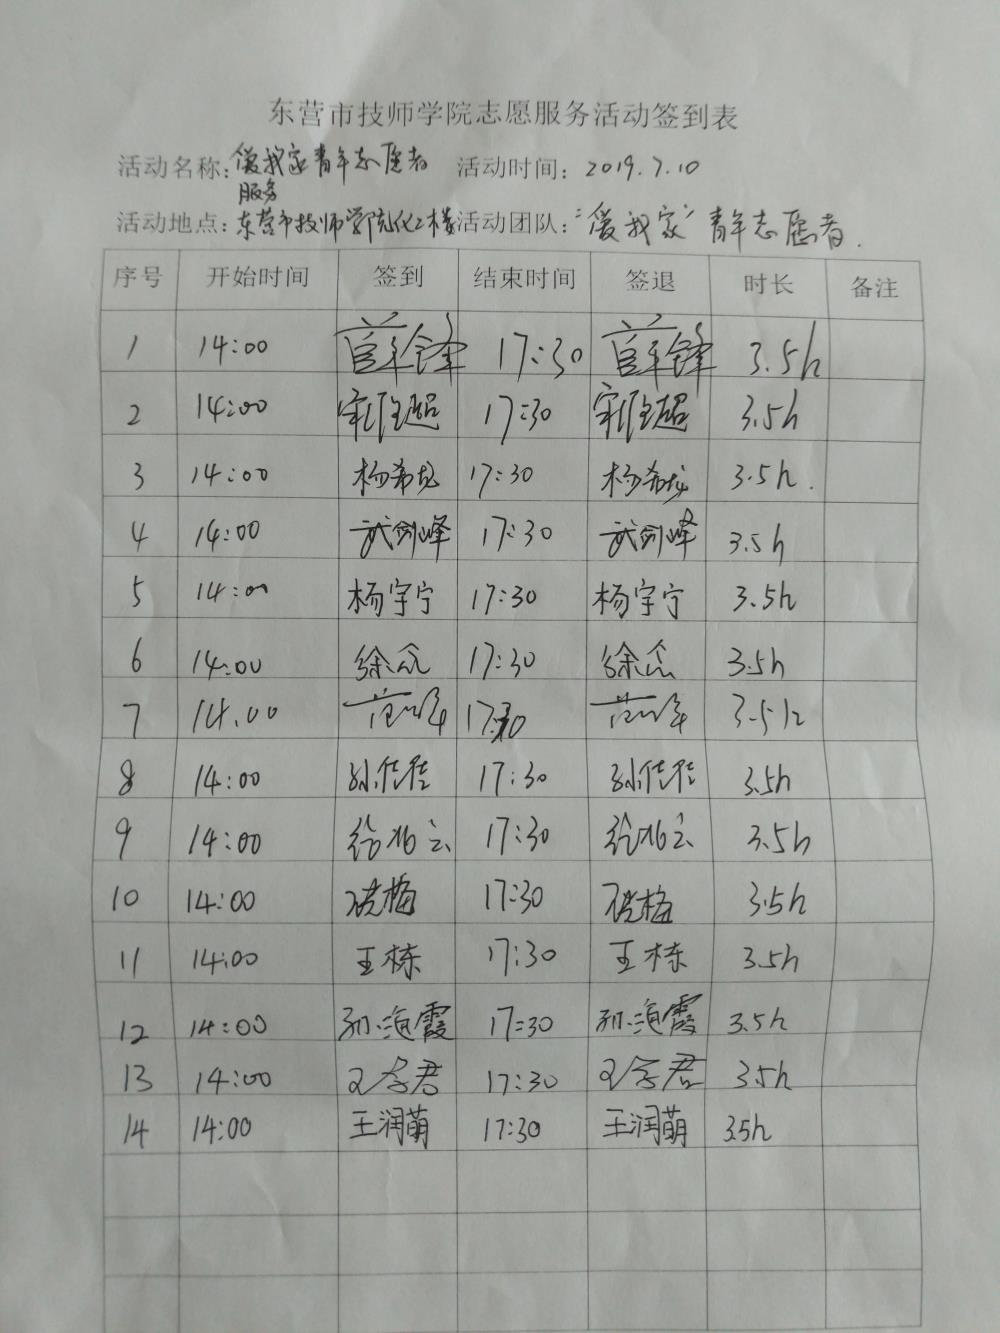 东营市技师学院志愿服务活动签到表
活动名称:爱我家青年志愿者 活动时间:2019.7.10
服务
活动地点:东营市技师学院化工楼 活动团队:“爱我家”青年志愿者.
序号 开始时间 签到 结束时间 签退 时长 备注
1 14:00 17:30 3.5h
2 14:00 17:30 3.5h
3 14:00 杨希龙 17:30 杨希龙 3.5h.
4 14:00 武剑峰 17:30 武剑峰 3.5h
5 14:00 杨宇宁 17:30 杨宇宁 3.5h
6 14:00 17:30 3.5h
7 14.00 17:30 3.5h
8 14:00 17:30 3.5h
9 14:00 17:30 3.5h
10 14:00 17:30 3.5h
11 14:00 王栋 17:30 王栋 3.5h
12 14:00 孙海霞 17:30 孙海霞 3.5h
13 14:00 17:30 3.5h
14 14:00 王润萌 17:30 王润萌 3.5h